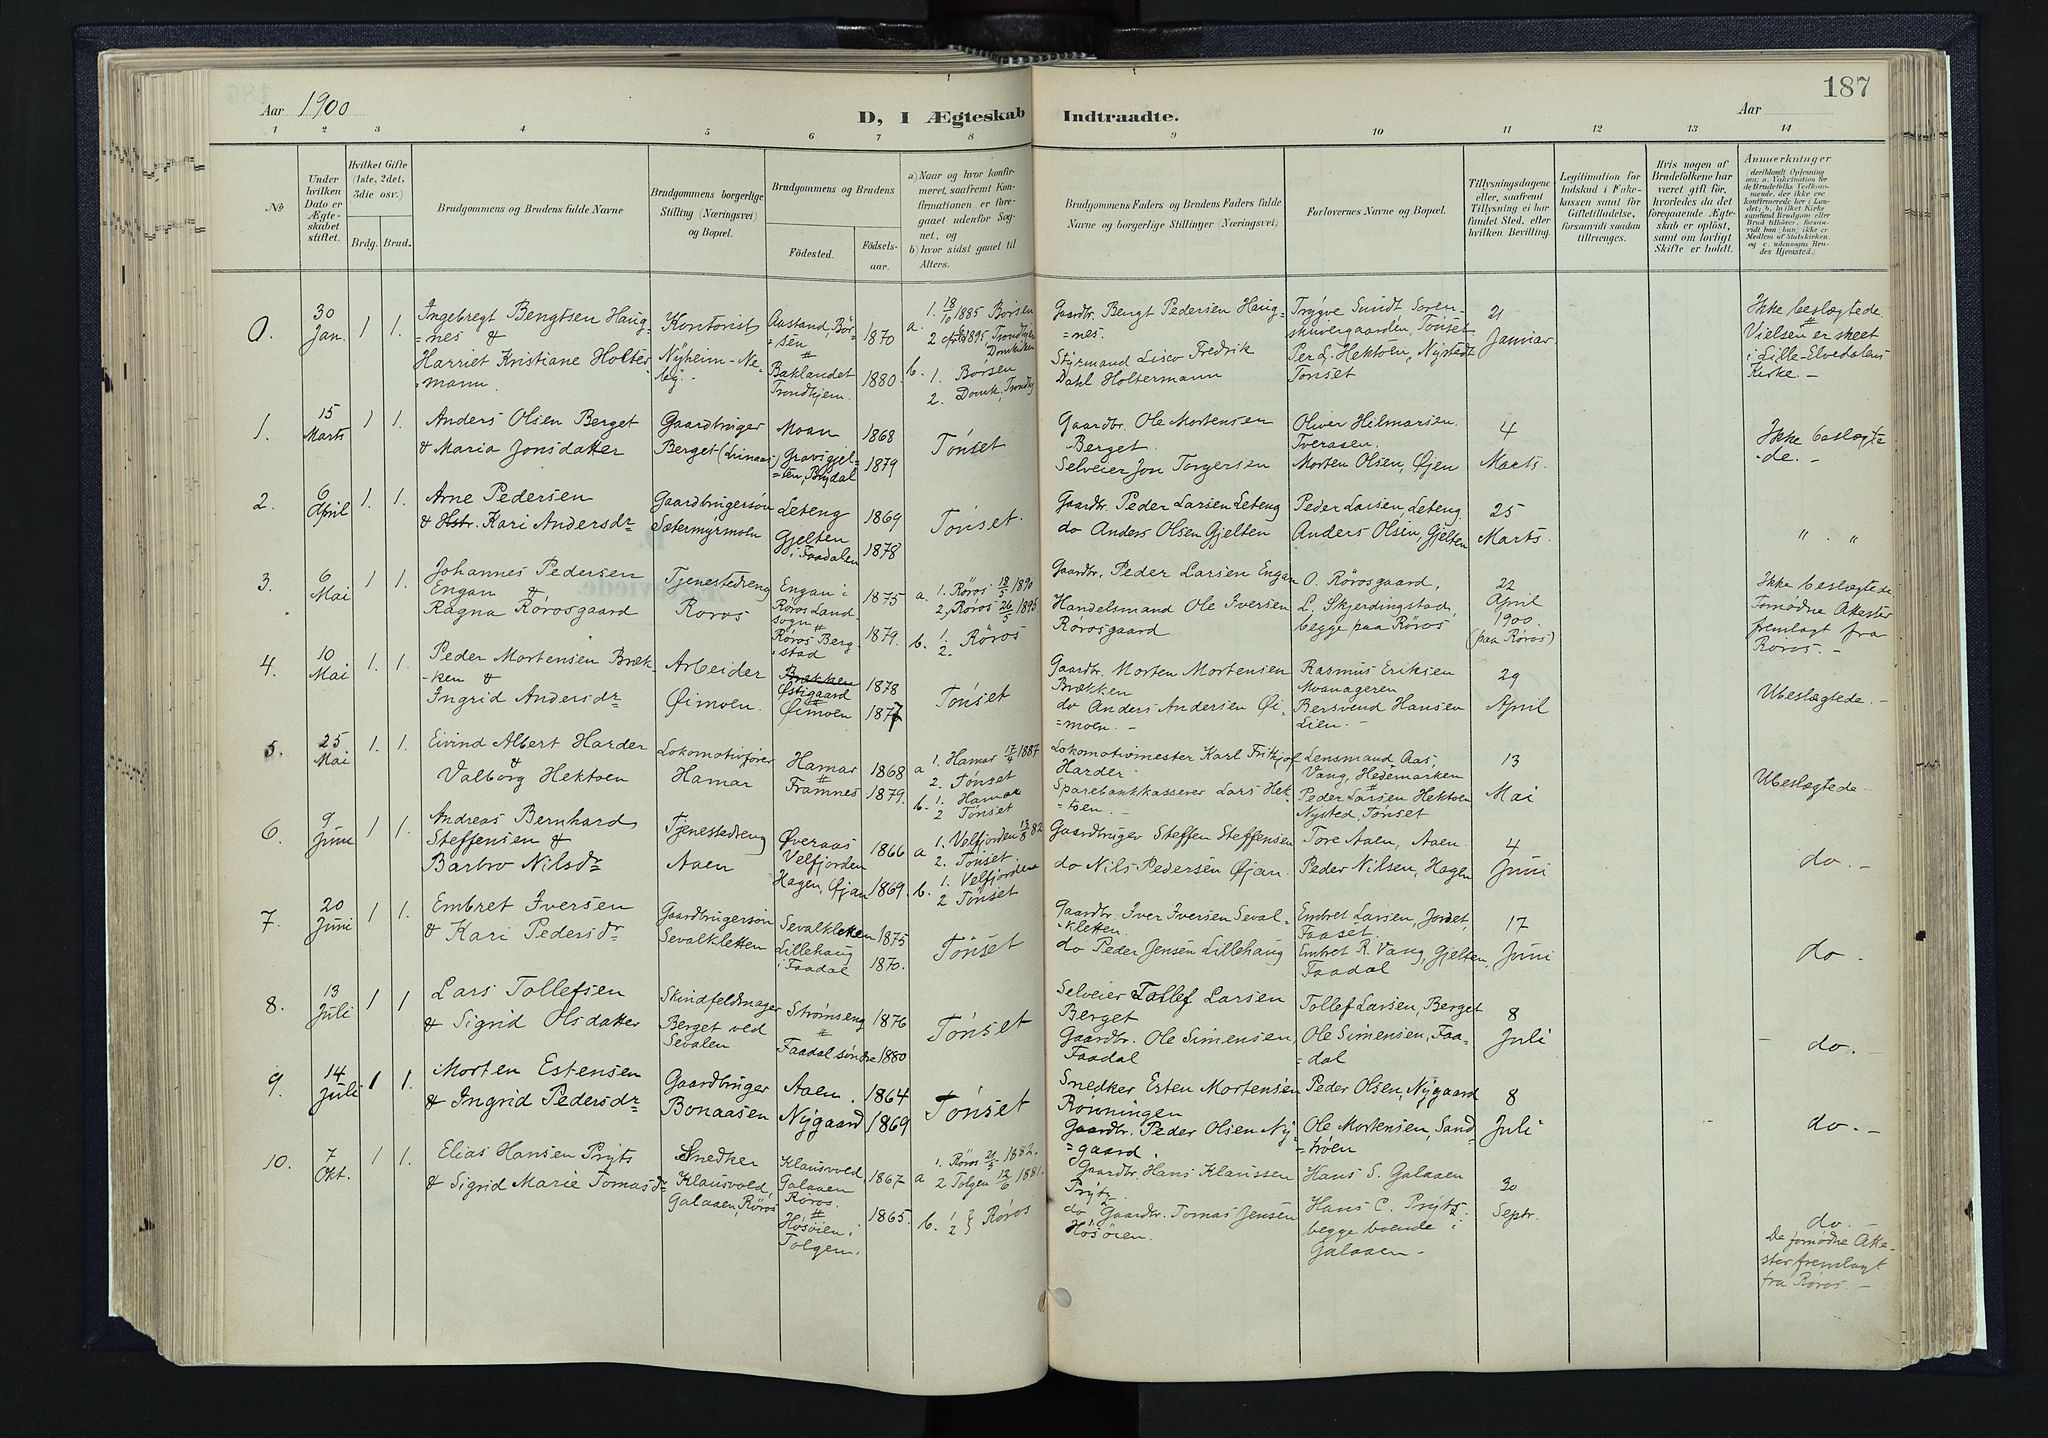 187
Aar 1900
D, I Ægteskab Indtraadte.
Aar
1 2 3 4 5 6 7 8 9 10 11 12 13 14
No
Under hvilken Dato er Ægteskabet stiftet.
Hvilket Gifte (1ste, 2det, 3die osv.)
Brdg. Brud.
Brudgommens og Brudens fulde Navne
Brudgommens borgerlige Stilling (Næringsvei) og Bopæl.
Brudgommens og Brudens
Födested.
Födselsaar.
a) Naar og hvor konfirmeret, saafremt Konfirmationen er foregaaet udenfor Sognet, og
b) hvor sidst gaaet til Alters.
Brudgommens Faders og Brudens Faders fulde Navne og borgerlige Stillinger (Næringsvei)
Forlovernes Navne og Bopæl.
Tillysningsdagene eller, saafremt Tillysning ei har fundet Sted, efter hvilken Bevilling.
Legitimation for Indskud i Enkekassen samt for Giftetilladelse, forsaavidt saadan tiltrænges.
Hvis nogen af Brudefolkene har været gift för, hvorledes da det foregaaende Ægteskab er oplöst, samt om lovligt Skifte er holdt.
Anmerkninger
0. 30 Jan. 1 1.
Ingebregt Bengtsen Haug-
=nes &
Harriet Kristiane Holter-
mann
Kontorist
Nyheim - Ne-
by.
Aastand, Bør-
sen
Baklandet
Trondhjem.
1870
1880.
a. 1. 18/10 1885 Børsen
2. 1895 Trondhjem
Domkirken
b. 1. Børsen
2. Domk. Trondhj.
Gaardbr. Bengt Pedersen Haug-
=nes.
Styrmand Lisco Fredrik
Dahl Holtermann
Trygve Sundt Soren-
skrivergaarden, Tønset
Per L. Hektoen, Nystedt
Tønset
21
Januar
Ikke beslægtede.
Vielsen er skeet
i Lille-Elvedalens
Kirke. -
1. 15 Marts 1 1.
Anders Olsen Berget
& Maria Jonsdatter
Gaardbruger
Berget
Moan
Gravsgjel-
=ten,
1868
1879
Tønset
Gaardbr. Ole Mortensen
Berget.
Selveier Jon Torgersen
Oliver Hilmarsen.
Tveraaen.
Morten Olsen, Øjen
4
Marts.
Ikke beslægte
de. -
2. 6 April 1. 1.
Arne Pedersen
& Hstr. Kari Andersdr
Gaardbrugersøn
Sætermyrmoen
Leteng
Gjelten
i Faadalen
1869
1878
Tønset.
Gaardbr. Peder Larsen Leteng
do Anders Olsen Gjelten
Peder Larsen, Leteng.
Anders Olsen, Gjelten
25
Marts.
" "
3. 6 Mai 1 1.
Johannes Pedersen
Engan &
Ragna Rørosgaard
Tjenestedreng
Røros
Engan i
Røros Land-
sogn
Røros Berg-
stad
1875
1879.
a. 1. Røros 18/5 1890
2. Røros 26/5 1895
b. 1. 2. Røros
Gaardbr. Peder Larsen Engan
Handelsmand Ole Iversen
Rørosgaard
O. Rørosgaard,
L. Skjerdingstad,
begge paa Røros
22
April
1900.
(paa Røros)
Ikke beslægtede
Fornødne Attester
fremlagt fra
Røros. -
4. 10 Mai 1. 1.
Peder Mortensen Bræk-
-ken &
Ingrid Andersdr
Arbeider
Øimoen.
Brækken
Østigaard
Øimoen
1878
1877
Tønset
Gaardbr. Morten Mortensen
Brækken
do Anders Andersen Øi-
=moen. -
Rasmus Eriksen
Moanageren
Bersvend Hansen
Lien. -
29
April
Ubeslægtede. -
5. 25 Mai 1. 1.
Eivind Albert Harder
&
Valborg Hektoen
Lokomotivfører
Hamar
Hamar
Framnes
1868
1879.
a 1. Hamar 17/4 1887
2. Tønset
b. 1. Hamar
2 Tønset
Lokomotivmester Karl Fritjof
Harder
Sparebankkasserer Lars Hek-
=toen. -
Lensmand Aas,
Vang, Hedemarken
Peder Larsen Hektoen
Nysted, Tønset
13
Mai
Ubeslægtede. -
6. 9 Juni 1 1.
Andreas Bernhard
Steffensen &
Barbro Nilsdr
Tjenestedreng
Aaen
Øveraas
Velfjorden
Hagen, Øjan
1866
1869.
a 1. Velfjorden 13/8 82
2. Tønset.
b. 1. Velfjorden
2 Tønset
Gaardbruger Steffen Steffensen
do Nils Pedersen Øjan.
Tore Aaen, Aaen
Peder Nilsen, Hagen
4
Juni
do. -
7. 20 Juni 1 1.
Embret Iversen
& Kari Pedersdr
Gaardbrugersøn
Sevalkletten
Sevalkletten
Lillehaug
i Faadal
1875
1870.
Tønset
Gaardbr. Iver Iversen Seval-
-kletten.
do Peder Jensen Lillehaug
Embret Larsen, Jordet,
Faaset.
Embret R. Vang, Gjelten,
Faadal
17
Juni
do -
8. 13 Juli 1 1
Lars Tollefsen
& Sigrid Olsdatter
Skindfeldmager
Berget ved
Sevalen
Strømseng
Faadal søndre
1876
1880
Tønset
Selveier Tollef Larsen
Berget
Gaardbr. Ole Simensen,
Faadal
Tollef Larsen, Berget
Ole Simensen, Faa-
=dal
8
Juli
do. -
9. 14 Juli 1 1.
Morten Estensen
& Ingrid Pedersdr
Gaardbruger
Bonaasen
Aaen.
Nygaard
1864
1869
Tønset
Snedker Esten Mortensen
Rønningen
Gaardbr. Peder Olsen Ny-
=gaard.
Peder Olsen, Nygaard
Ole Mortensen, Sand-
=trøen
8
Juli
do. -
10. 7 Okt. 1 1.
Elias Hansen Prytz
& Sigrid Marie Tomasdr
Snedker
Klausvold,
Galaaen, Røros
Klausvold
Galaaen
Røros.
Høsøien i
Tolgen.
1867
1865.
a 1. Røros 21/5 1882.
2 Tolgen 12/6 1881.
b. 1 2 } Røros
Gaardbr. Hans Klaussen
Prytz.
do Gaardbr. Tomas Jensen
Høsøien.
Hans S. Galaaen
Hans C. Prytz
begge boende i
Galaaen -
30
Septr.
do. -
De fornødne Atte-
ster fremlagt
fra Røros. -